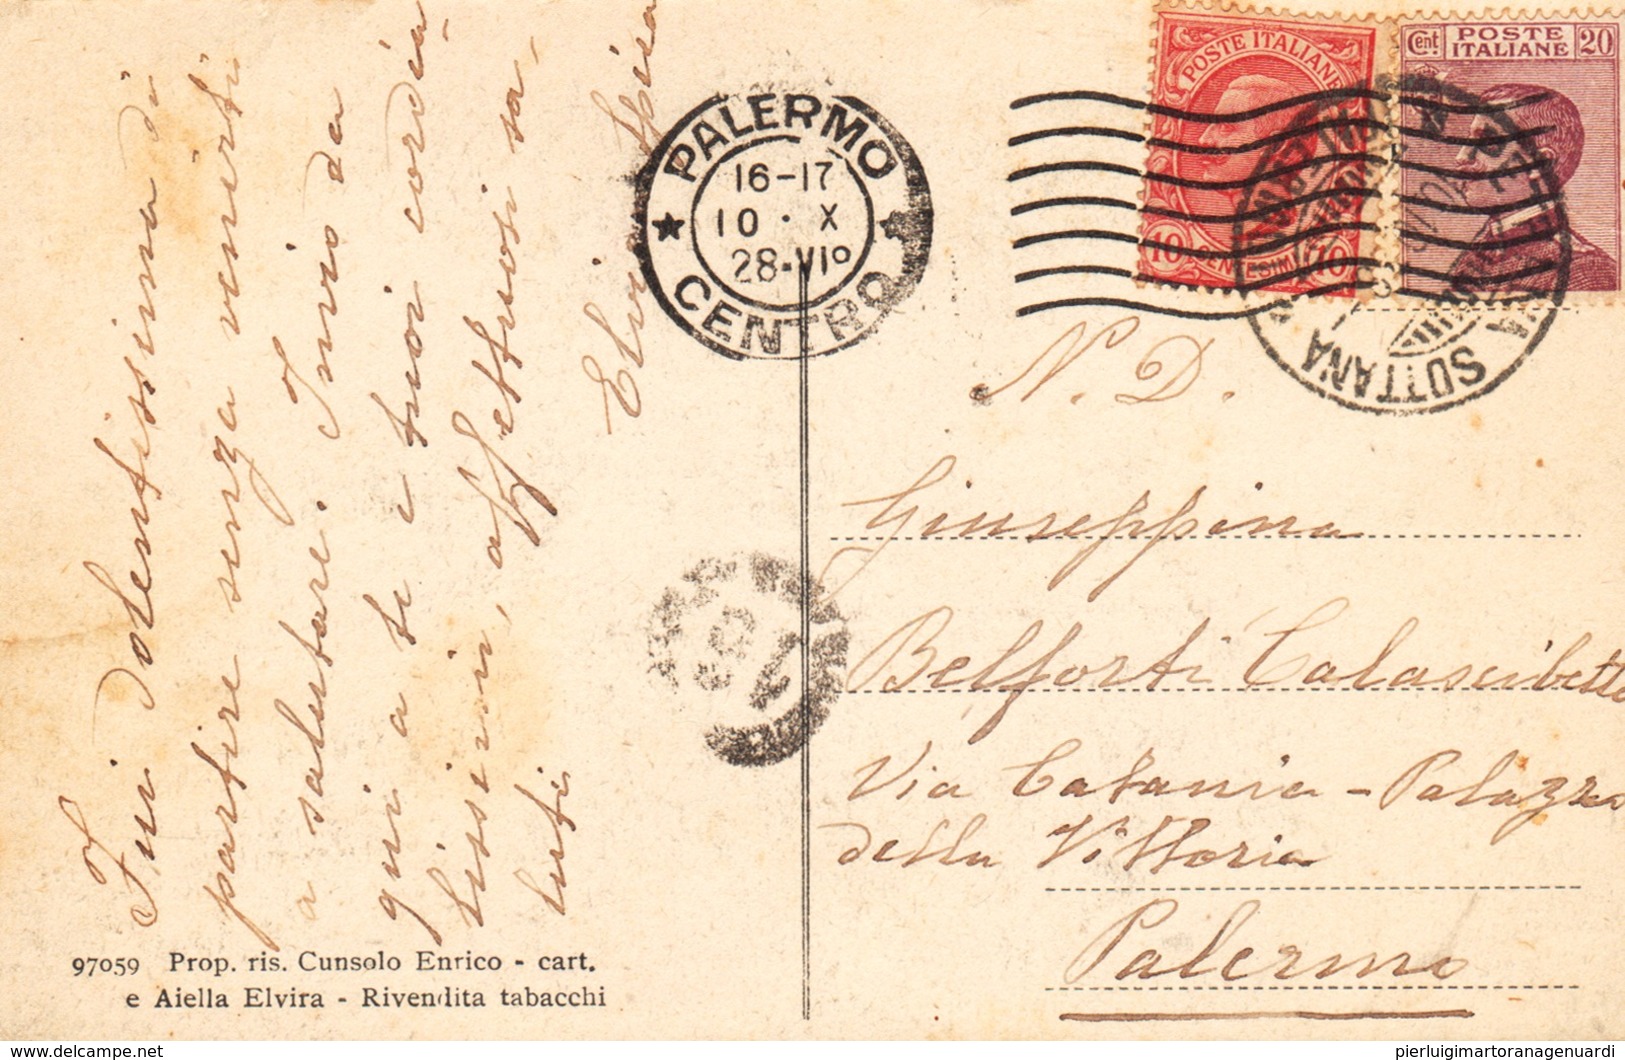 Fui dolentissima di
partire senza venirti
a salutare. Invio da
qui a te e tuoi cordia
lissimi, affettuosi sa,
luti
Elvi
PALERMO
16-17
10 · X
28·VIº
CENTRO
POSTE ITALIANE
10 CENTESIMI 10
Cent POSTE ITALIANE 20
PETRALIA SOTTANA
N. D.
Giuseppina
Belforti Calascibetta
Via Catania - Palazzo
della Vittoria
Palermo
97059 Prop. ris. Cunsolo Enrico - cart.
e Aiella Elvira - Rivendita tabacchi
delcampe.net
pierluigimartoranagenuardi